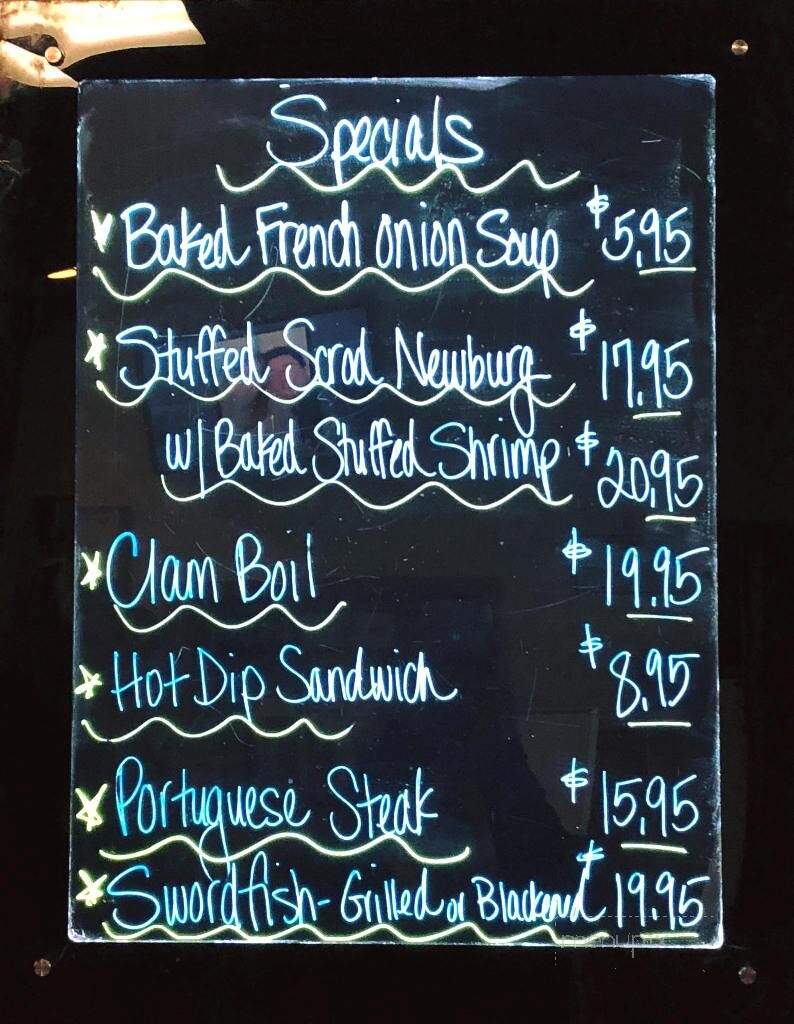 Specials
Baked French Onion Soup $5.95
Stuffed Scrod Newburg $17.95
w/ Baked Stuffed Shrimp $20.95
Clam Boil $19.95
Hot Dip Sandwich $8.95
Portuguese Steak $15.95
Swordfish - Grilled or Blackened $19.95